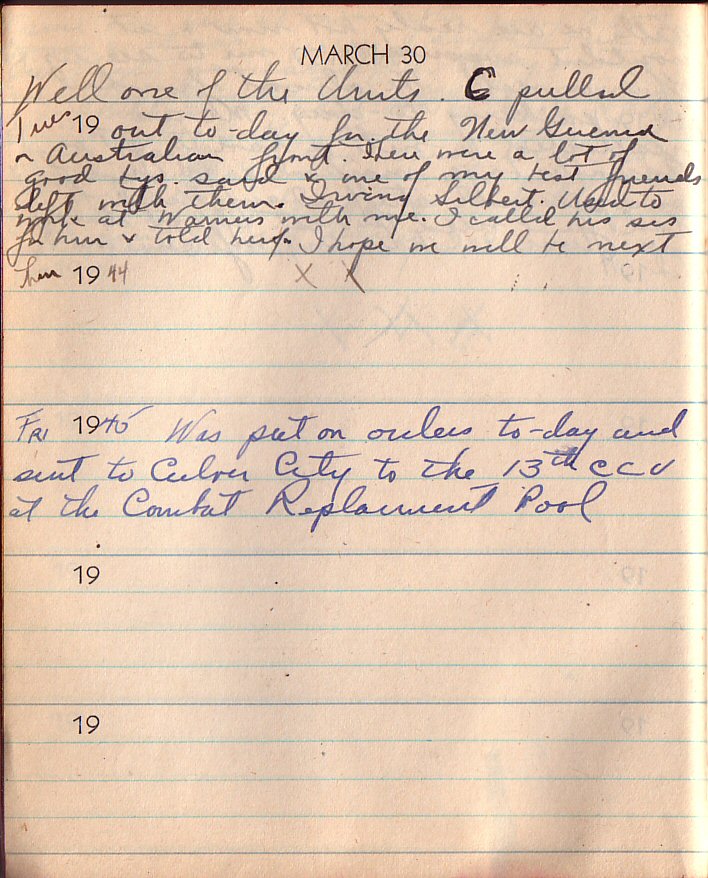 MARCH 30
Well one of the Units. 6 pulled
Tues 19 out to-day for the New Guenea
Australian front. There were a lot of
good said & one of my best friends
left with them. Irving Silbert. Used to
work at Warners with me. I called his sis
for him & told her. I hope we will be next
Thur 1944 X X
Fri 1945 Was put on orders to-day and
sent to Culver City to the 13th CCU
at the Combat Replacement Pool
19
19